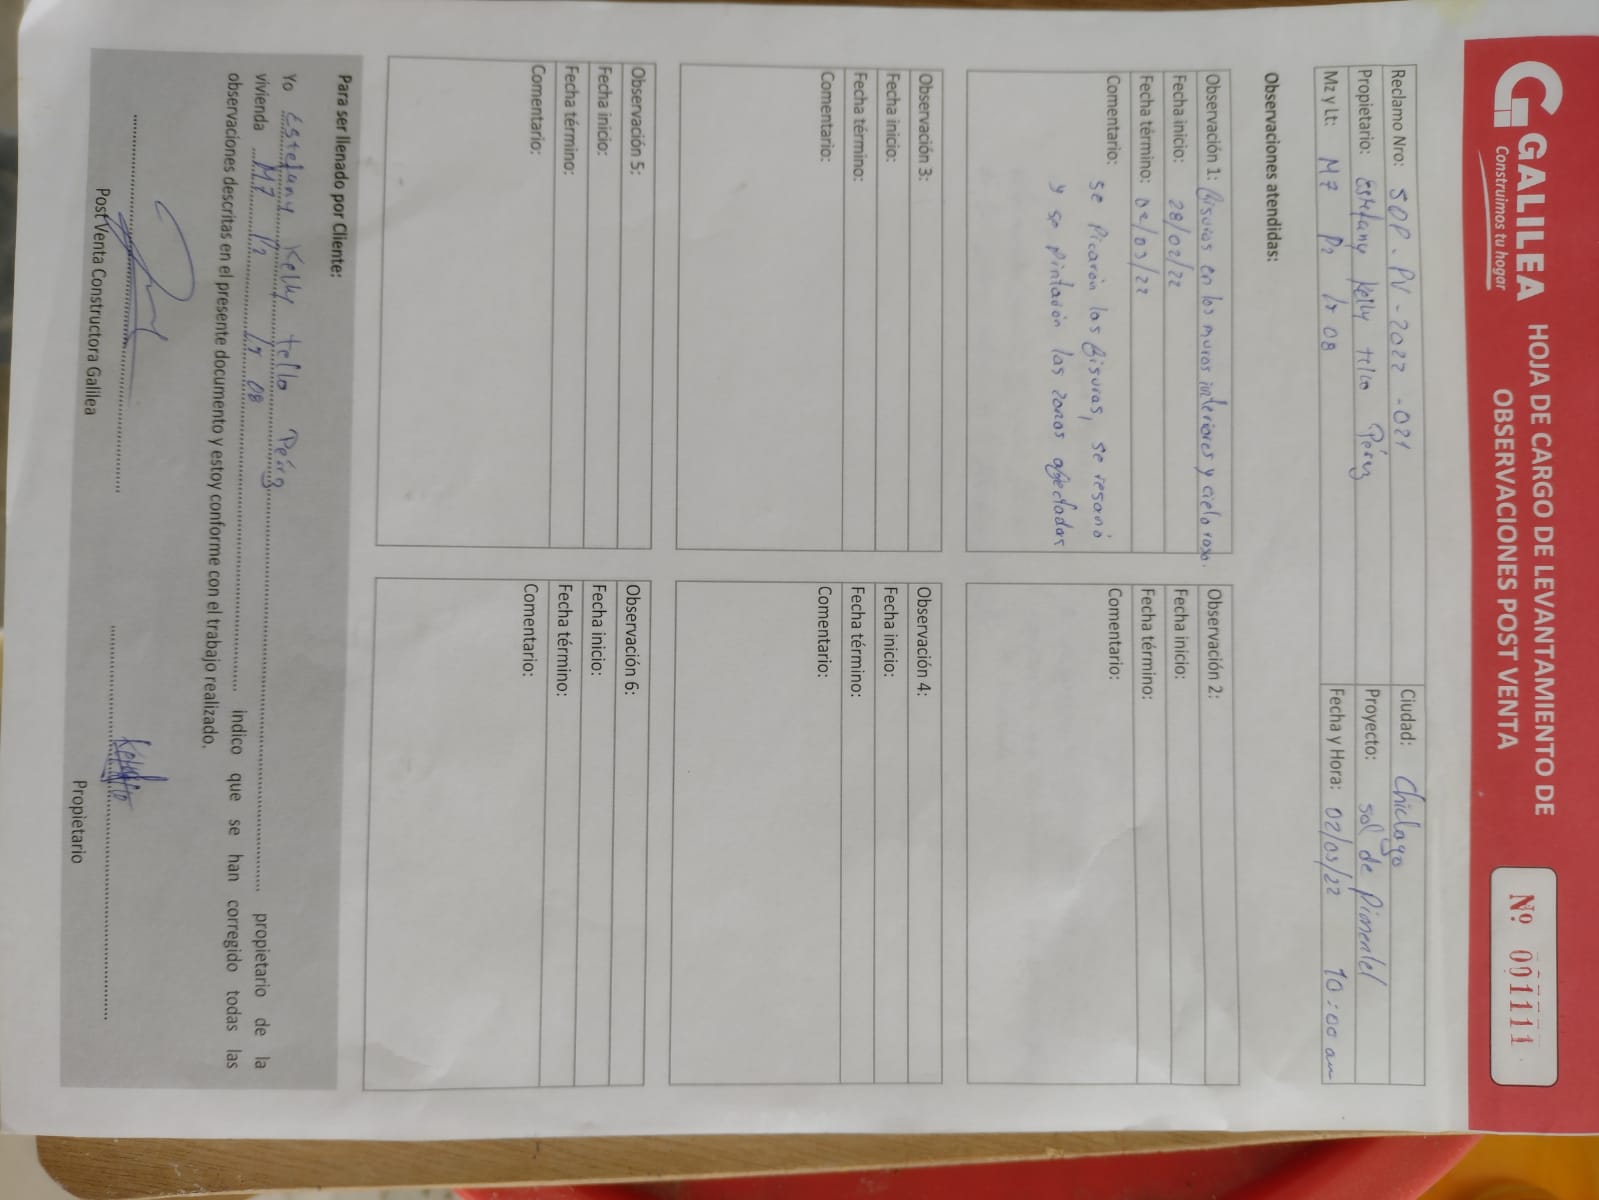 GALILEA
Construimos tu hogar
HOJA DE CARGO DE LEVANTAMIENTO DE
OBSERVACIONES POST VENTA
Nº 001111
Reclamo Nro: SOP-PV-2022-021
Ciudad: Chiclayo
Propietario: Estefany Kelly tello Pérez
Proyecto: sol de Pimentel
Mz y Lt: M7 P2 lt 08
Fecha y Hora: 02/03/22 10:00 am
Observaciones atendidas:
Observación 1: fisuras en los muros interiores y cielo raso.
Fecha inicio: 28/02/22
Fecha término: 02/03/22
Comentario: se picarón las fisuras, se resanó
y se pintarón las zonas afectadas
Observación 2:
Fecha inicio:
Fecha término:
Comentario:
Observación 3:
Fecha inicio:
Fecha término:
Comentario:
Observación 4:
Fecha inicio:
Fecha término:
Comentario:
Observación 5:
Fecha inicio:
Fecha término:
Comentario:
Observación 6:
Fecha inicio:
Fecha término:
Comentario:
Para ser llenado por Cliente:
Yo Estefany Kelly tello Peérz propietario de la
vivienda M7 P2 lt 08 indico que se han corregido todas las
observaciones descritas en el presente documento y estoy conforme con el trabajo realizado.
Post Venta Constructora Galilea
Propietario